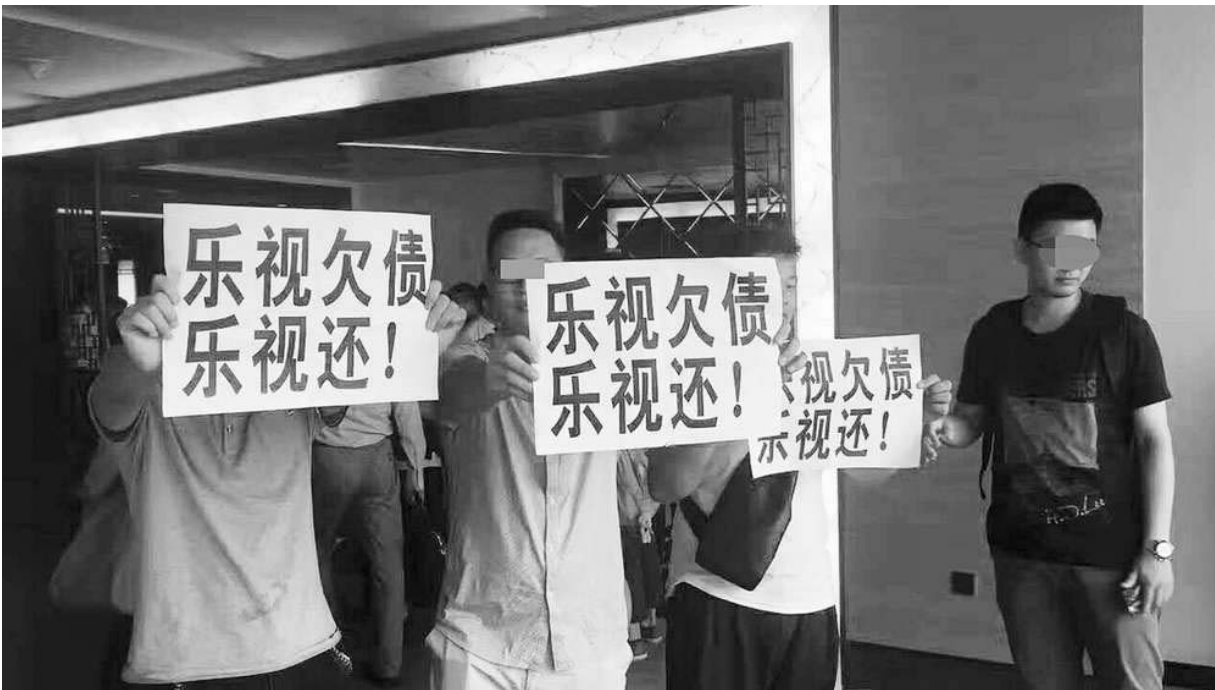 乐视欠债
乐视还！
乐视欠债
乐视还！
视欠债
乐视还！